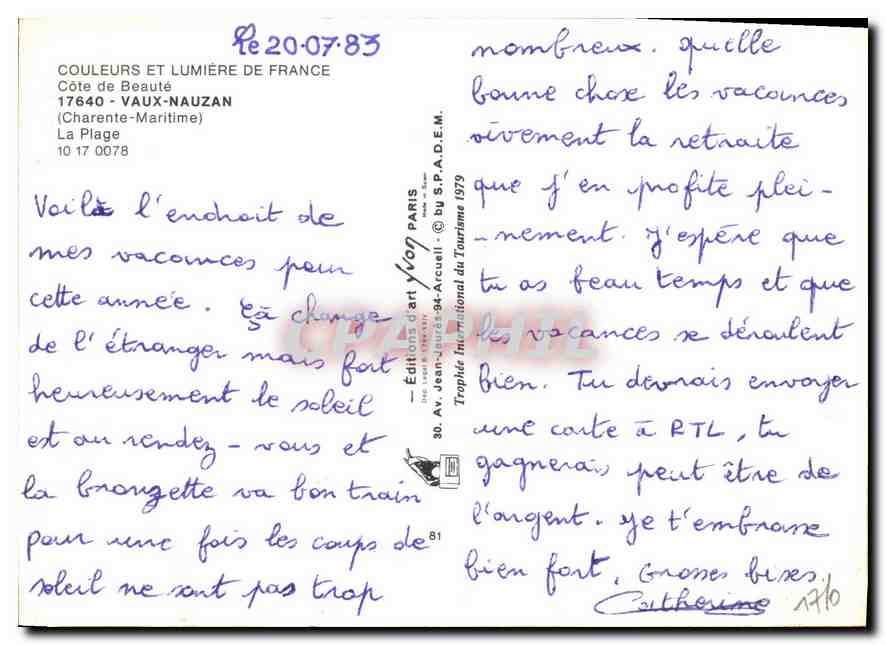 le 20.07.83
COULEURS ET LUMIÈRE DE FRANCE
Côte de Beauté
17640 - VAUX-NAUZAN
(Charente-Maritime)
La Plage
10 17 0078
Voilà l'endroit de
mes vacances pour
cette année. Çà change
de l'étranger mais fort
heureusement le soleil
est au rendez-vous et
la bronzette va bon train
pour une fois les coups de
soleil ne sont pas trop
81
— Éditions d'art YVON PARIS
Made in Spain
30. Av. Jean-Jaurès-94-Arcueil - © by S.P.A.D.E.M.
Trophée International du Tourisme 1979
CPAPHIL
nombreux. quelle
bonne chose les vacances
vivement la retraite
que j'en profite plei-
-nement. J'espère que
tu as beau temps et que
les vacances se déroulent
bien. Tu devrais envoyer
une carte à RTL, tu
gagnerais peut être de
l'argent. Je t'embrasse
bien fort, Grosses bises.
Catherine
17/0